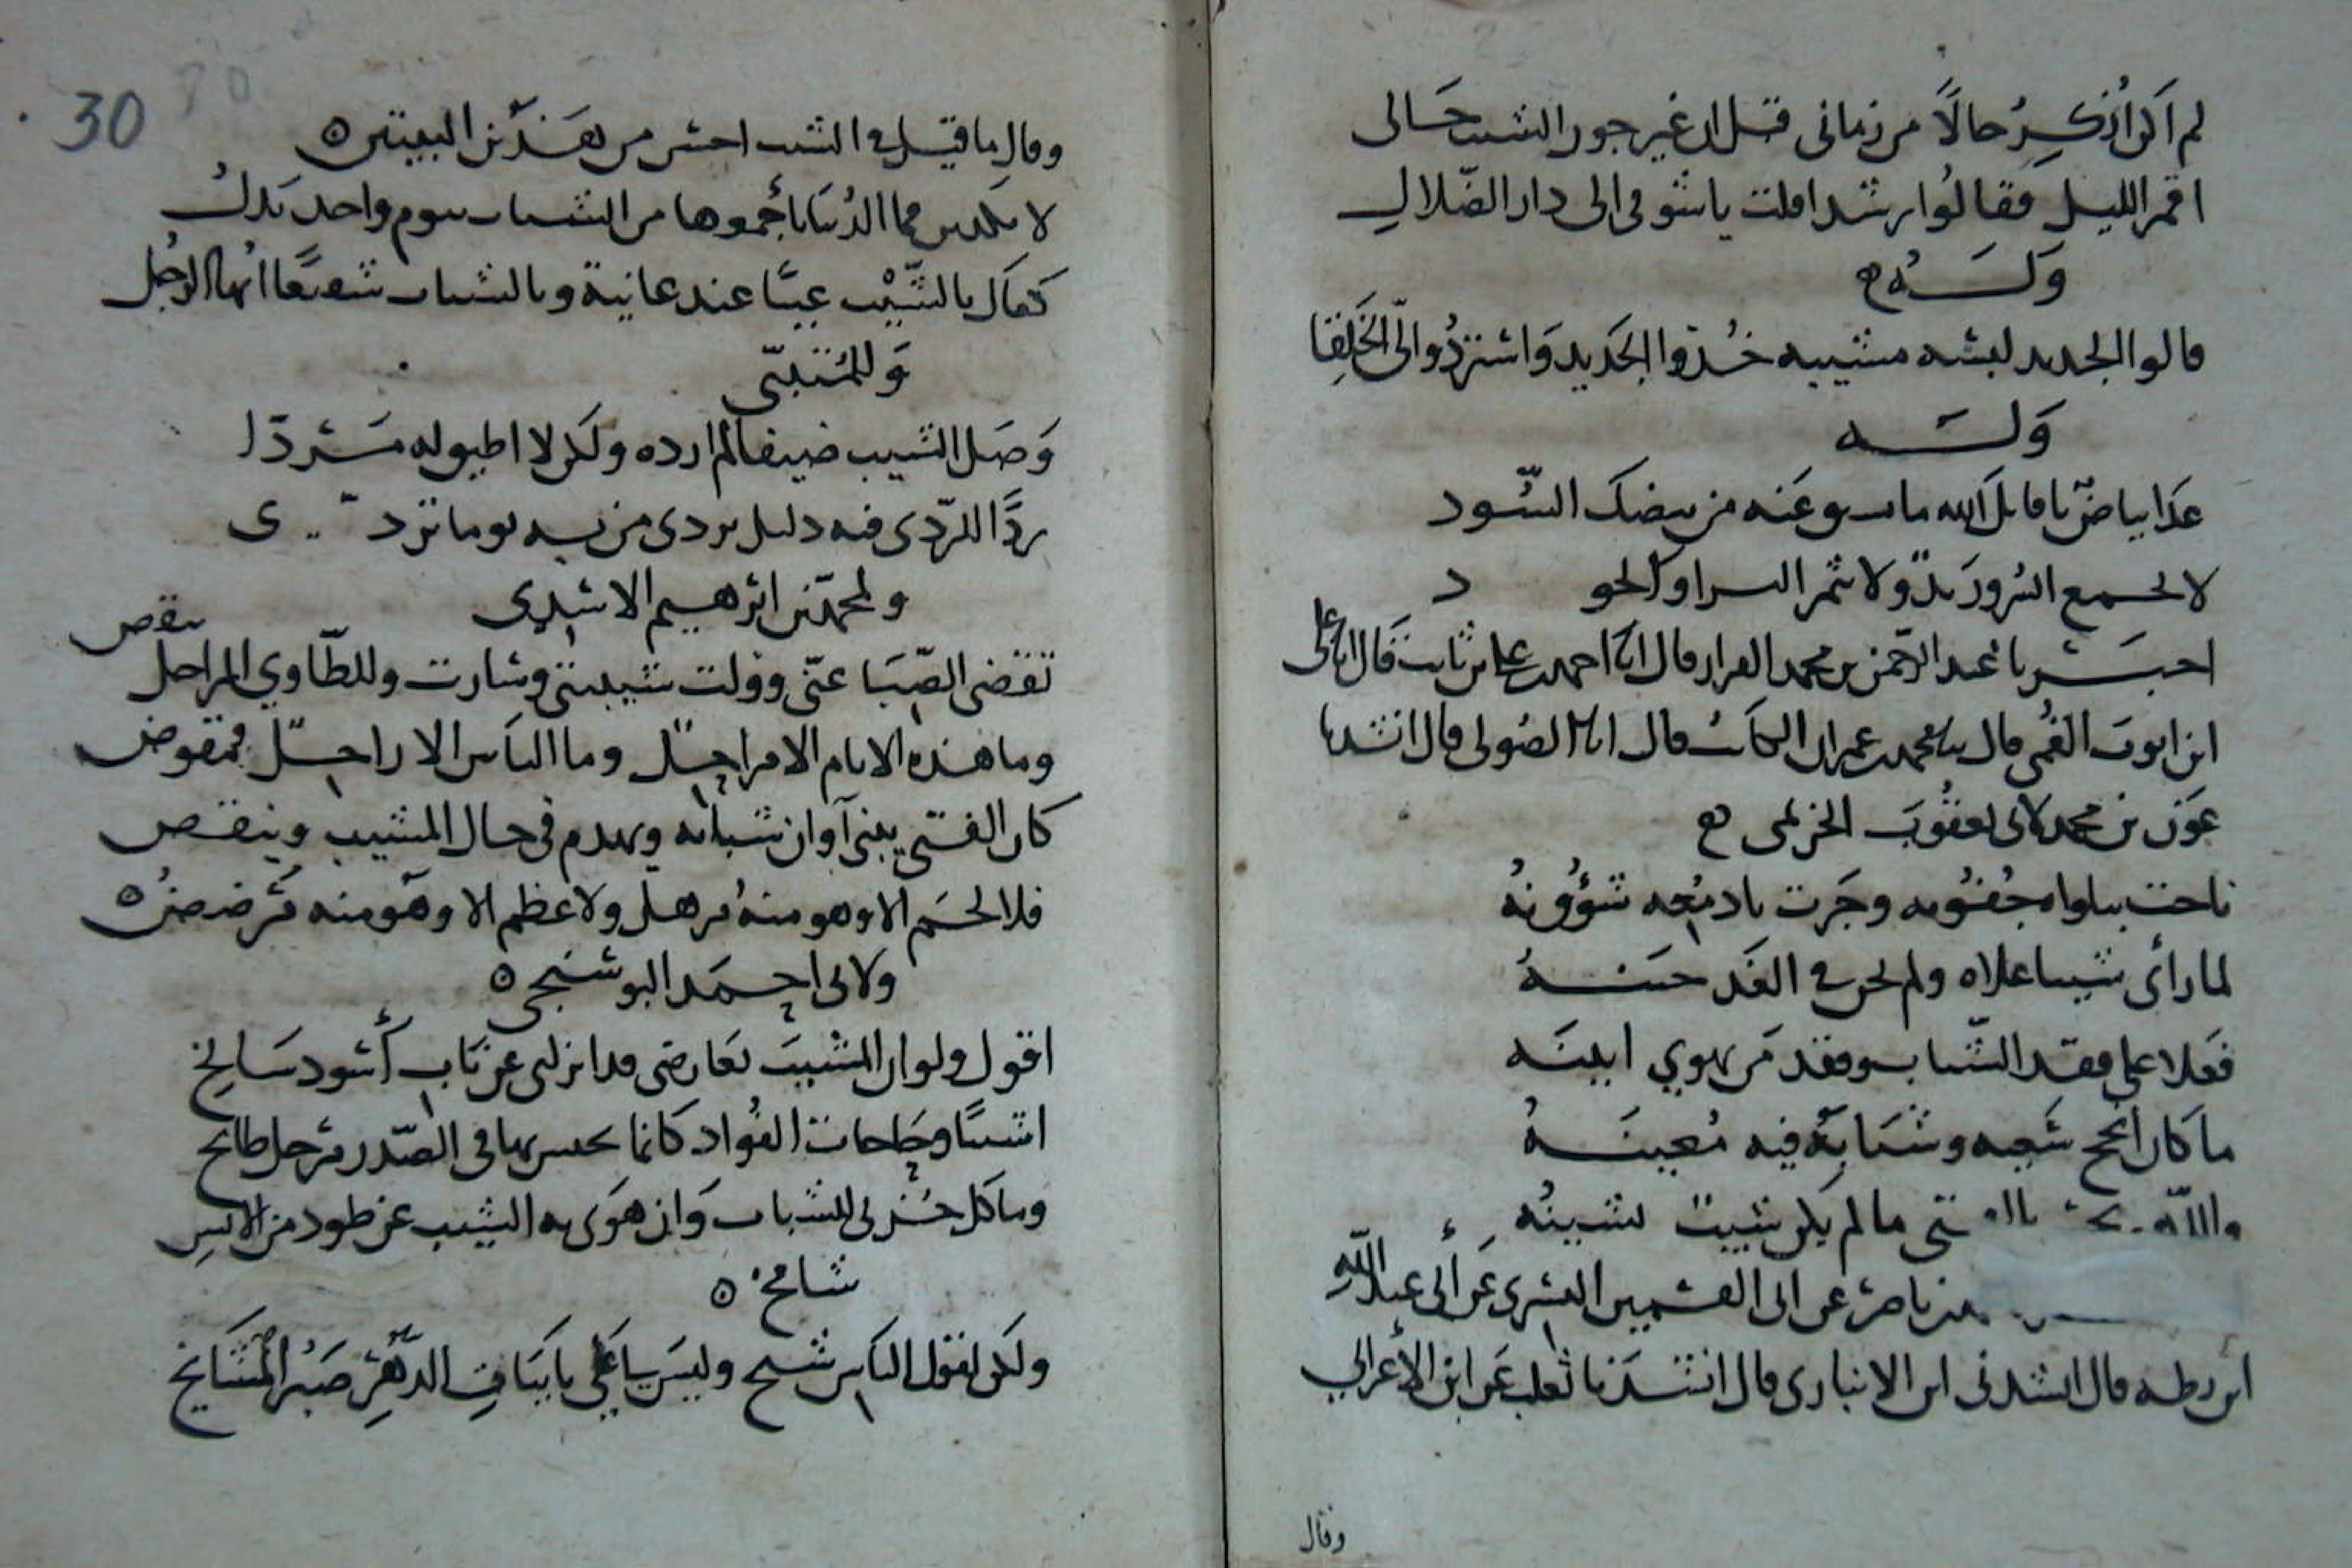 لم اكن اذكر حالا من زمانى قبل ان غير جور الشيب حالى
اقمر الليل فقالوا رشدا قلت يا شوقى الى دار الضلال
وله
قالوا الجديد لبشه مشيبه خذوا الجديد واستردوا لى الخلقا
وله
عدا بياض يا قاتل الله ما عنه من بيضك السود
لا السرور ولا ثمر او الجو د
اخبرنا عبد الرحمن بن محمد القزاز قال انا احمد بن على بن ثابت قال انا على
ابن ايوب القمى قال محمد بن عمران الكاتب قال انا الصولى قال انشدنا
عون بن محمد لابى يعقوب الخزيمى
ناحت جفونه وجرت بادمعه شؤونه
لما رأى شيبا علاه ولم يحن فى العد حينه
فعلا على فقد الشباب وفقد من يهوى انينه
ما كان انجح سعيه وشبابه فيه معينه
والله بالفتى ما لم يكن شيب يشينه
بن ناصر عن ابى القسم بن البسرى عن أبى عبد الله
ابن بطه قال انشدنى ابن الانبارى قال انشدنا ثعلب عن ابن الأعرابى
وقال
30
وقال ما قيل فى الشيب احسن من هذين البيتين
لا فما الدنيا بأجمعها من الشباب بيوم واحد بدل
كفاك بالشيب عيبا عند غانية وبالشباب شفيعا ايها الرجل
وللمتنبى
وصل الشيب ضيفا لم ارده ولكن لا اطيق له مردا
ردا للردى فيه دليل تردى من به يوما تردى
ولمحمد بن ابرهيم الاسدى
تقضى الصبا عنى وولت شبيبتى وشارت وللطاوي المراحل
ينقض
وما هذه الايام الا مراحل وما الناس الا راحل فمقوض
كان الفتى يبنى آوان شبابه ويهدم فى حال المشيب وينقض
فلا لحم الا وهو منه مرهل ولا عظم الا وهو منه مرضض
ولابى احمد البوشنجى
اقول ولو ان المشيب بعارضى قد انزلى عن ناب أسود سالخ
اشيبا وحاجات الفواد كانما بها فى الصدر مرجل طابخ
وما كل حزنى للشباب وان هوى به الشيب عن طود من الانس
شامخ
ولكن لقول الناس شيخ وليس لى على نايبات الدهر صبر المشايخ